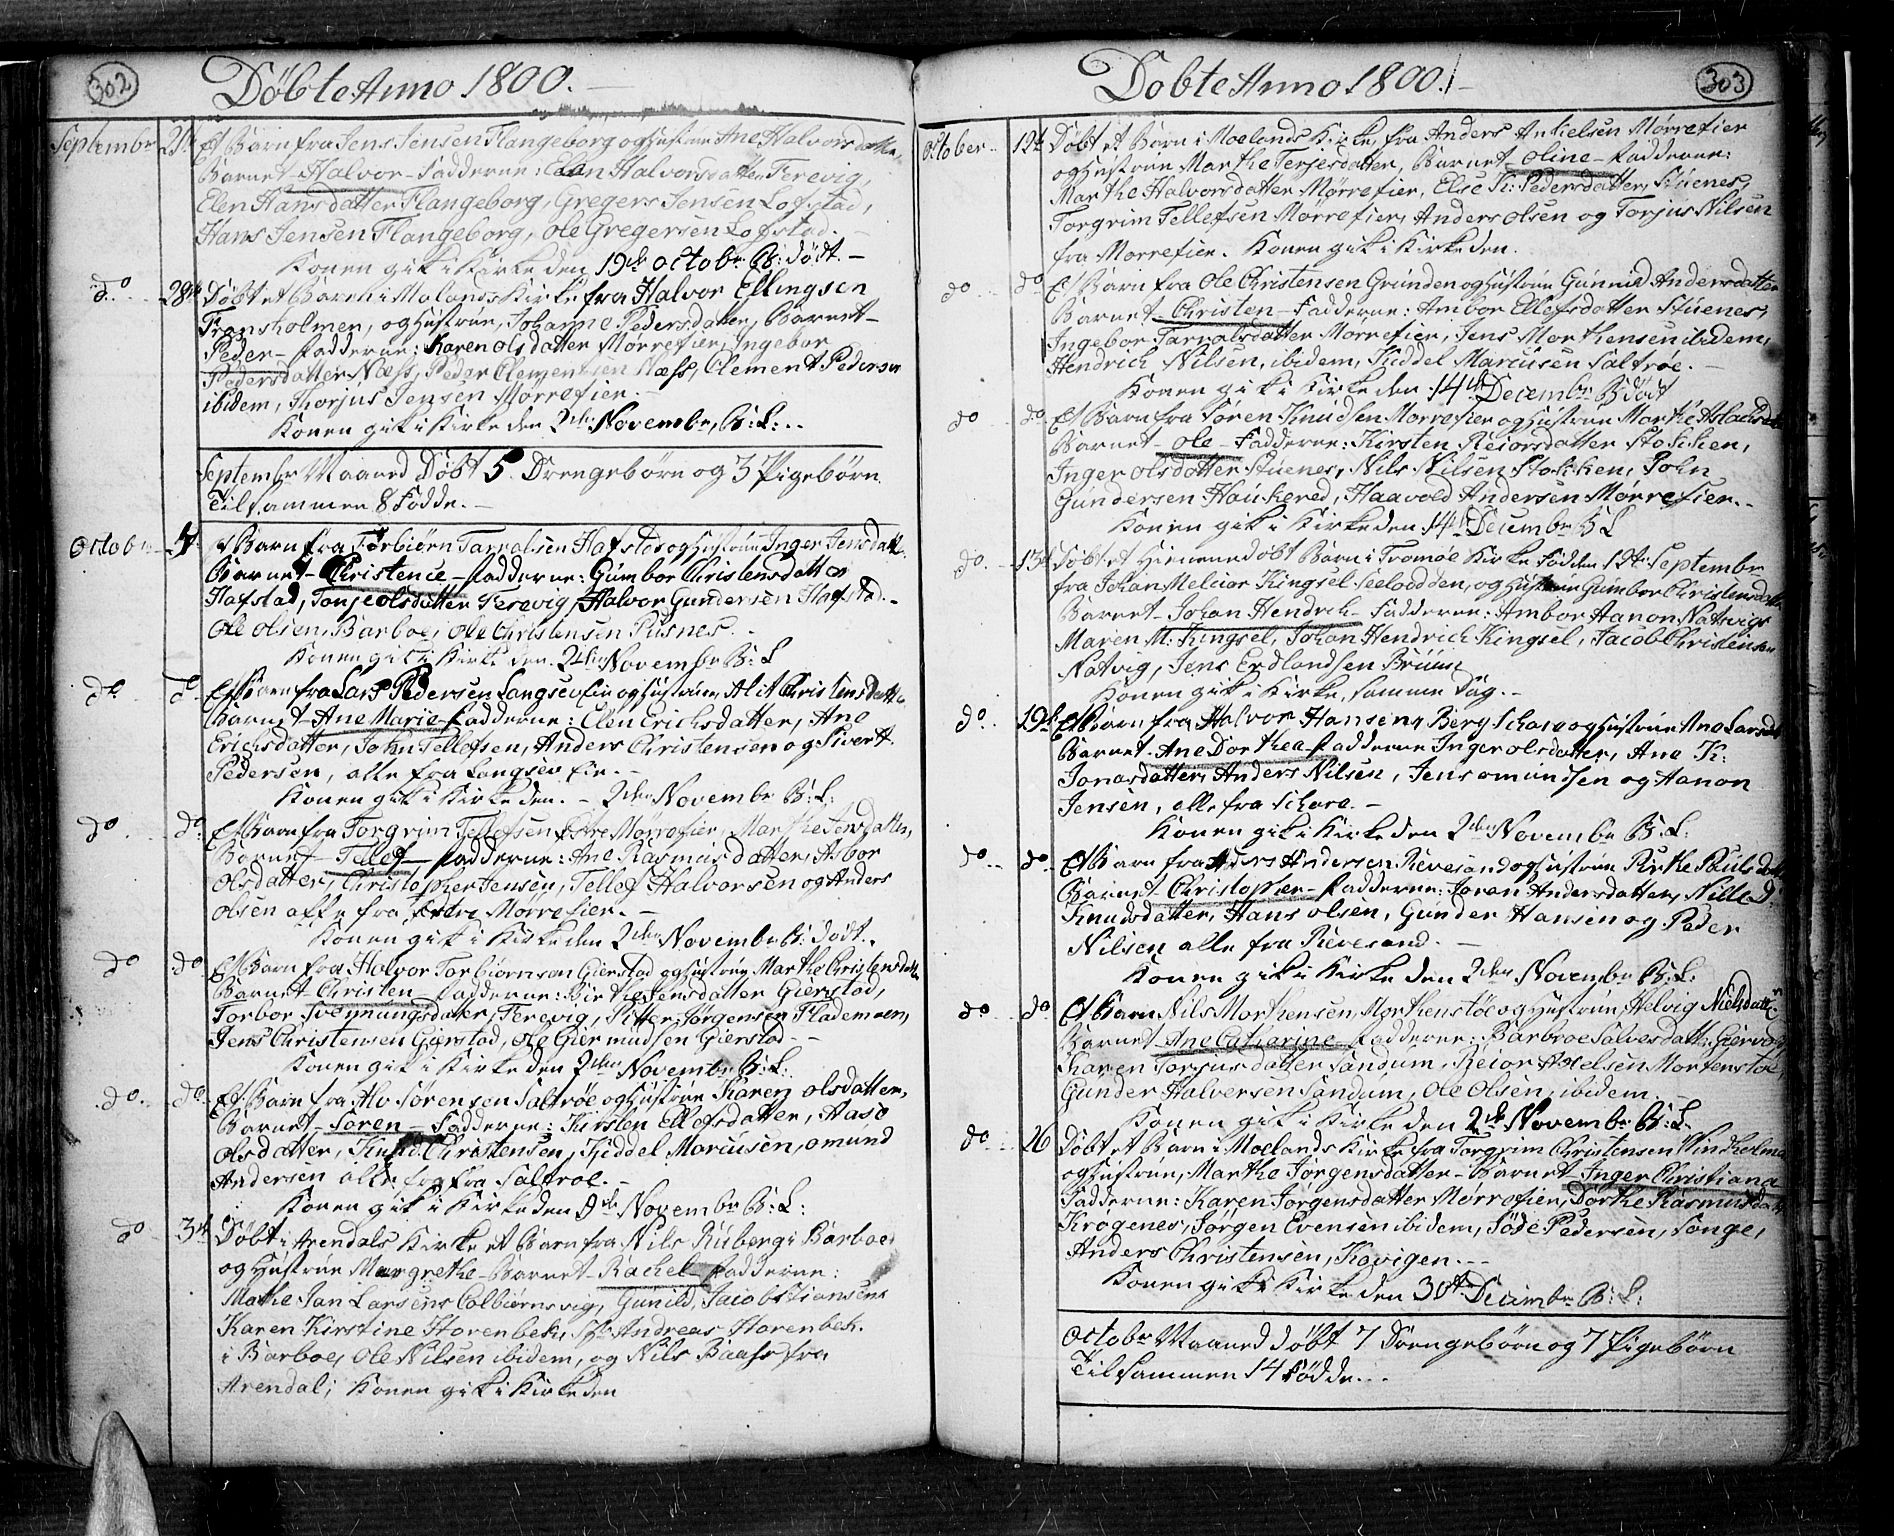 302
Døbte Anno 1800.
Septembr 21de Et Barn fra Jens Jensen Flangeborg og Hustrue Ane Halvorsdatter,
Barnet Halvor Fadderne: Elen Halvorsdatter Ferevig,
Elen Hansdatter Flangeborg, Gregers Jensen Lofstad,
Hans Jensen Flangeborg, Ole Gregersen Lofstad.
Konen gik i Kirke den 19de octobr B: dödt.
do 28de Døbt et Barn i Molands Kirke fra Halvor Ellingsen
Fransholmen, og Hustrue, Johanne Pedersdatter, Barnet
Peder Fadderne: Karen olsdatter Mørrefier, Ingebor
Pedersdatter Næss, Peder Clementsen Næss, Clement Pedersen
ibidem, Thorjus Jensen Mörrefier.
Konen gik i Kirke den 2den Novembr, B: L:
Septembr Maaned Døbt 5 Drengebørn og 3 Pigebørn
Tilsammen 8 Födde.
Octobr 5te Et Barn fra Torbiörn Tarralsen Hafsted og Hustrue Inger Jensdatter
Barnet Christence Fadderne: Gumbor Christensdatter
Hafstad, Tonje olsdatter Ferevig, Halvor Gundersen Hafstad.
Ole Olsen, Barboe, Ole Christensen Pusnes.
Konen gik i Kirke den 2den Novembr B: L
do do Et Barn fra Lars Pedersen Langsev Eie og Hustrue, Alit Christensdatter
Barnet Ane Marie Fadderne: Elen Erichsdatter, Ane
Erichsdatter, John Tellefsen, Anders Christensen og Sivert
Pedersen, alle fra Langsev Eie.
Konen gik i Kirke den 2den Novembr B: L:
do do Et Barn fra Torgrim Tellefsen Estre Mørrefier, Marthe Jensdatter,
Barnet Tellef Fadderne: Ane Rasmusdatter, Asbor
Olsdatter, Christopher Jensen, Tellef Halvorsen og Anders
Olsen alle fra Estre Mørrefier.
Konen gik i Kirke den 2den Novembr B: dödt.
do do Et Barn fra Halvor Torbiörnsen Gierstad og Hustrue Marthe Christensdatter
Barnet Christen Fadderne: Birthe Jensdatter Gierstad,
Torbor Svennungsdatter, Ferevig, Peter Jørgensen Flademoen,
Jens Christensen Gierstad, Ole Giermundsen Gierstad
Konen gik i Kirke den 2den Novembr B: L:
do do Et Barn fra Alv Sørensen Saltröe og Hustrue Karen olsdatter,
Barnet Sören Fadderne: Kirsten Ellefsdatter, Aase
Olsdatter, Knud Christensen, Kiddel Marcusen, omund
Andersen alle fra Saltroe.
Konen gik i Kirke den 9de Novembr B: L:
do 3de Døbt i Arendals Kirke et Barn fra Nils Ruberg i Barboe,
og Hustrue Margrethe Barnet Rachel Fadderne:
Mathe Jan Larsens Colbiörnsvig, Gunild, Jacob Hansens
Karen Kirstine Horenbek, Andreas Horenbek.
i Barboe, Ole Nilsen ibidem, og Nils Baass fra
Arendal; Konen gik i Kirke den
303
Døbte Anno 1800.
October 12te Døbt et Barn i Moelands Kirke fra Anders Ankielsen Mørrefier
og Hustrue Marthe Terjesdatter, Barnet Oline Fadderne:
Marthe Halvorsdatter Mørrefier, Else K: Pedersdatter, Stuenes,
Torgrim Tellefsen Mørrefier, Anders Olsen og Torjus Nilsen
fra Morrefier. Konen gik i Kirke den.
do do Et Barn fra Ole Christensen Grunden og Hustrue Gunnild Andersdatter
Barnet Christen Fadderne: Ambor Ellefsdatter Stuenes,
Ingebor Tarralsdatter Morrefier, Jens Morthensen ibidem,
Hendrich Nilsen, ibidem, Kiddel Marcusen Saltrøe.
Konen gik i Kirke den 14de Decembr B: dödt
do do Et Barn fra Søren Knudsen Morrefier og Hustrue Marthe Aslachsd:
Barnet Ole Fadderne: Kirsten Reiorsdatter Stokken,
Inger Olsdatter Stuenes, Nils Nilsen Stokken, John
Gundersen Haukered, Haavold Andersen Mörrefier.
Konen gik i Kirke den 14de Decembr B: L
do 13de Döbt et Hiemmedøbt Barn i Tromøe Kirke Fødden 12te Septembr
fra Johan Melcior Kingsel Seelodden, og Hustrue Gumbor Christensdatter
Barnet Johan Hendrich Fadderne: Ambor Aanon Natvigs
Maren M. Kingsel, Johan Hendrich Kingsel, Jacob Christensen
Natvig, Jens Erdlandsen Bruun
Konen gik i Kirke, samme Dag.
do 19de Et Barn fra Halvor Hansen, Berg Schare og Hustrue Ane Larsd:
Barnet Ane Dorthea Fadderne Inger Olsdatter, Ane K:
Jonasdatter, Anders Nilsen, Jens omundsen og Aanon
Jensen, alle fra Schare.
Konen gik i Kirke den 2den Novembr B: L:
do do Et Barn fra Anders Andersen Revesand og Hustrue Birthe Poulsdatter
Barnet Christopher Fadderne: Joran Andersdatter, Nille
Knudsdatter, Hans Olsen, Gunder Hansen og Peder
Nilsen alle fra Revesand.
Konen gik i Kirke den 2den Novembr B: L:
do do Et Barn Nils Morthensen, Morthenstöe og Hustrue, Helvig Nielsdatter
Barnet Ane Catharine Fadderne: Barbroe Salvesdatt: Giervold,
Karen Torjusdatter Sandum, Reior Axelsen Mortenstöe,
Gunder Halversen Sandum, Ole Olsen, ibidem.
Konen gik i Kirke den 2de Novembr B: L:
do 26 Døbt et Barn i Moelands Kirke fra Torgrim Christensen Windholmen
og Hustrue, Marthe Jørgensdatter Barnet Inger Christiana
Fadderne: Karen Jørgensdatter Mørrefier, Dorthe Rasmusdatter
Krogenes, Jørgen Evensen ibidem, Söde Pedersen, Songe,
Anders Christensen, Kovigen.
Konen gik i Kirke den 30te Decembr B: L:
Octobr Maaned Døbt 7 Drengebørn og 7 Pigebørn
Tilsammen 14 Födde.